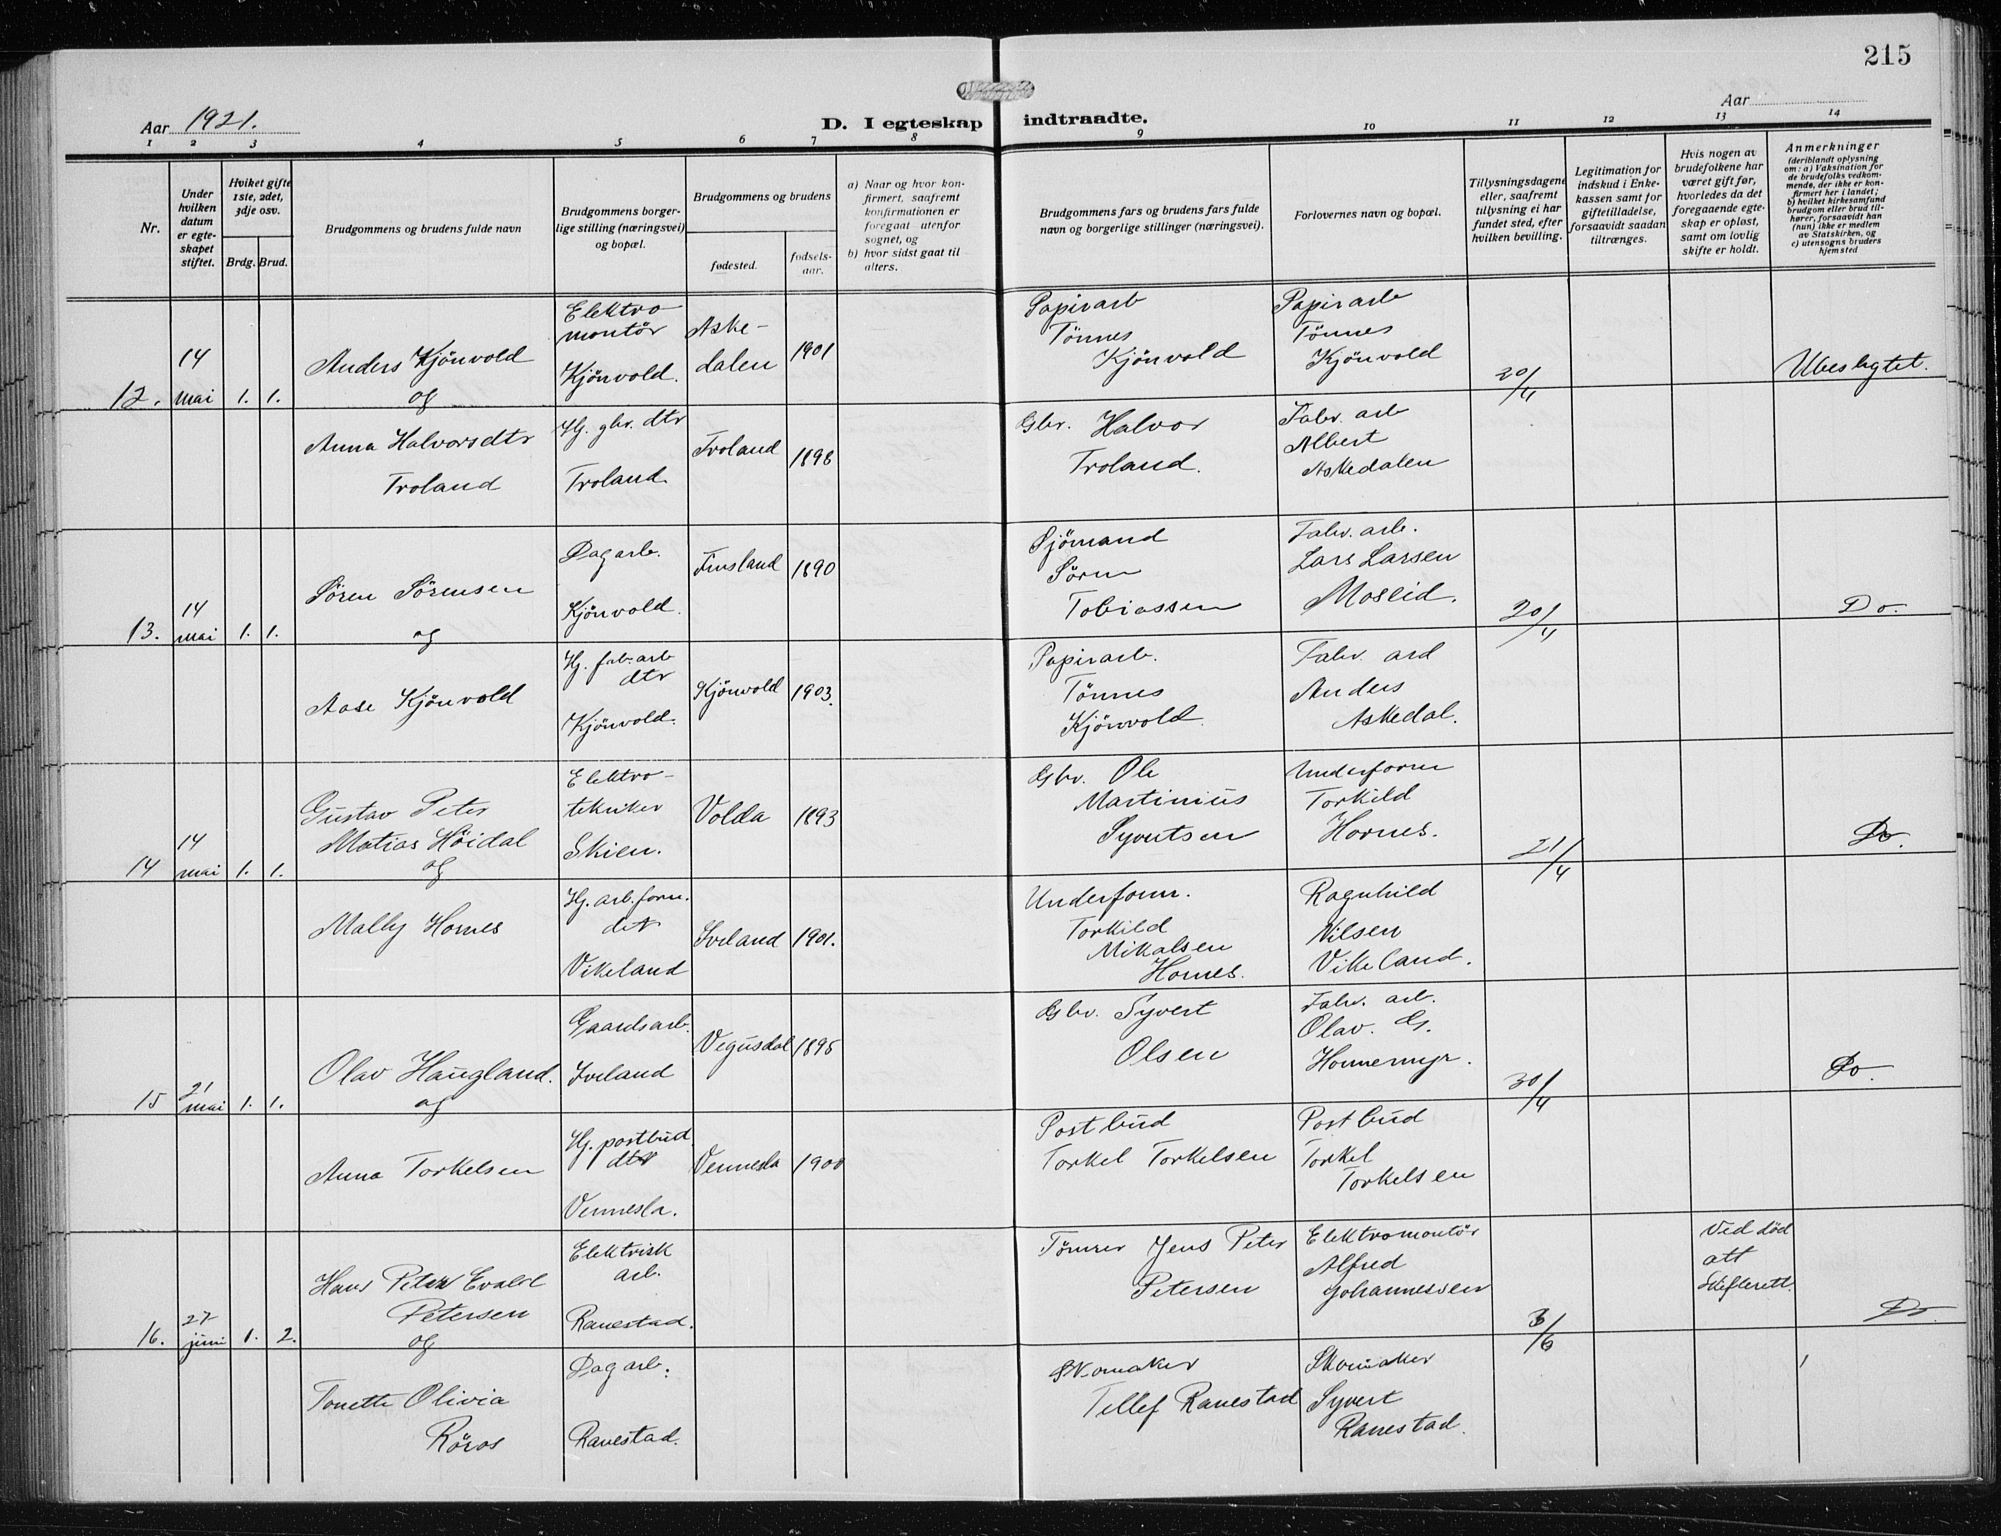 215
Aar 1921.
D. I egteskap indtraadte.
Aar
1 2 3 4 5 6 7 8 9 10 11 12 13 14
Nr.
Under hvilken datum er egteskapet stiftet.
Hviket gifte 1ste, 2det, 3dje osv.
Brdg. Brud.
Brudgommens og brudens fulde navn
Brudgommens borgerlige stilling (næringsvei) og bopæl.
Brudgommens og brudens
fødested.
fødsels-aar.
a) Naar og hvor konfirmert, saafremt konfirmationen er foregaat utenfor sognet, og
b) hvor sidst gaat til alters.
Brudgommens fars og brudens fars fulde navn og borgerlige stillinger (næringsvei).
Forlovernes navn og bopæl.
Tillysningsdagene eller, saafremt tillysning ei har fundet sted, efter hvilken bevilling.
Legitimation for indskud i Enkekassen samt for giftetilladelse, forsaavidt saadan tiltrænges.
Hvis nogen av brudefolkene har været gift før, hvorledes da det foregaaende egteskap er opløst, samt om lovlig skifte er holdt.
Anmerkninger
(deriblandt oplysning om: a) Vaksination for de brudefolks vedkommende, der ikke er konfirmert her i landet; b) hvilket kirkesamfund brudgom eller brud tilhører, forsaavidt han (hun) ikke er medlem av Statskirken, og c) utensogns bruders hjemsted
12. 14 mai 1. 1.
Anders Kjönvold
og
Elektro
montör
Kjönvold.
Aske-
dalen
1901
Papirarb
Tönnes
Kjönvold
Papirarb
Tönnes
Kjönvold
20/4
Ubeslegtet.
Anna Halvorsdtr
Troland
Hj. gbr. dtr
Troland.
Troland
1898
Gbr. Halvor
Troland.
Fabr. arb
Albert
Askedalen
13. 14 mai 1. 1.
Sören Sörensen
og
Dagarb.
Kjönvold.
Finsland
1890
Sjömand
Sörn
Tobiassen
Fabr. arb.
Lars Larsen
Moseid.
20/4
Do.
Aase Kjönvold
Hj. fab. arb
dtr
Kjönvold.
Kjönvold
1903.
Papirarb.
Tönnes
Kjönvold.
Fabr. ard
Anders
Askedal.
14 14 mai 1. 1.
Gustav Peter
Matias Höidal
og
Elektro-
tekniker
Skien.
Volda
1893
Gbr. Ole
Martinius
Syvertsen
Underform
Torkild
Hornes.
21/4
Do.
Mally Hornes
Hj. arb. form.
det
Vikeland
Iveland
1901.
Underform.
Torkild
Mikalsen
Hornes.
Ragnhild
Nilsen
Vikeland.
15 21 mai 1. 1.
Olav Haugland.
og
Gaardsarb.
Iveland
Vegusdal
1895
Gbr. Syvert
Olsen
Fabr. arb.
Olav. G.
Honnemyr.
30/4
Do.
Anna Torkelsen
Hj. postbud
dtr
Vennesla.
Vennesla
1900
Postbud
Torkel Torkelsen
Postbud
Torkel
Torkelsen
16. 27 juni 1. 2.
Hans Peter Evald
Petersen
og
Elektrisk
arb.
Ranestad.
Tömrer Jens Peter
Petersen
Elektromontör
Alfred
Johannessen
3/6
Ved död
att
Skifterett.
Do.
Tonette Olivia
Röros
Dagarb.
Ranestad.
Skomaker
Tellef Ranestad
Skomaker
Syvert
Ranestad.